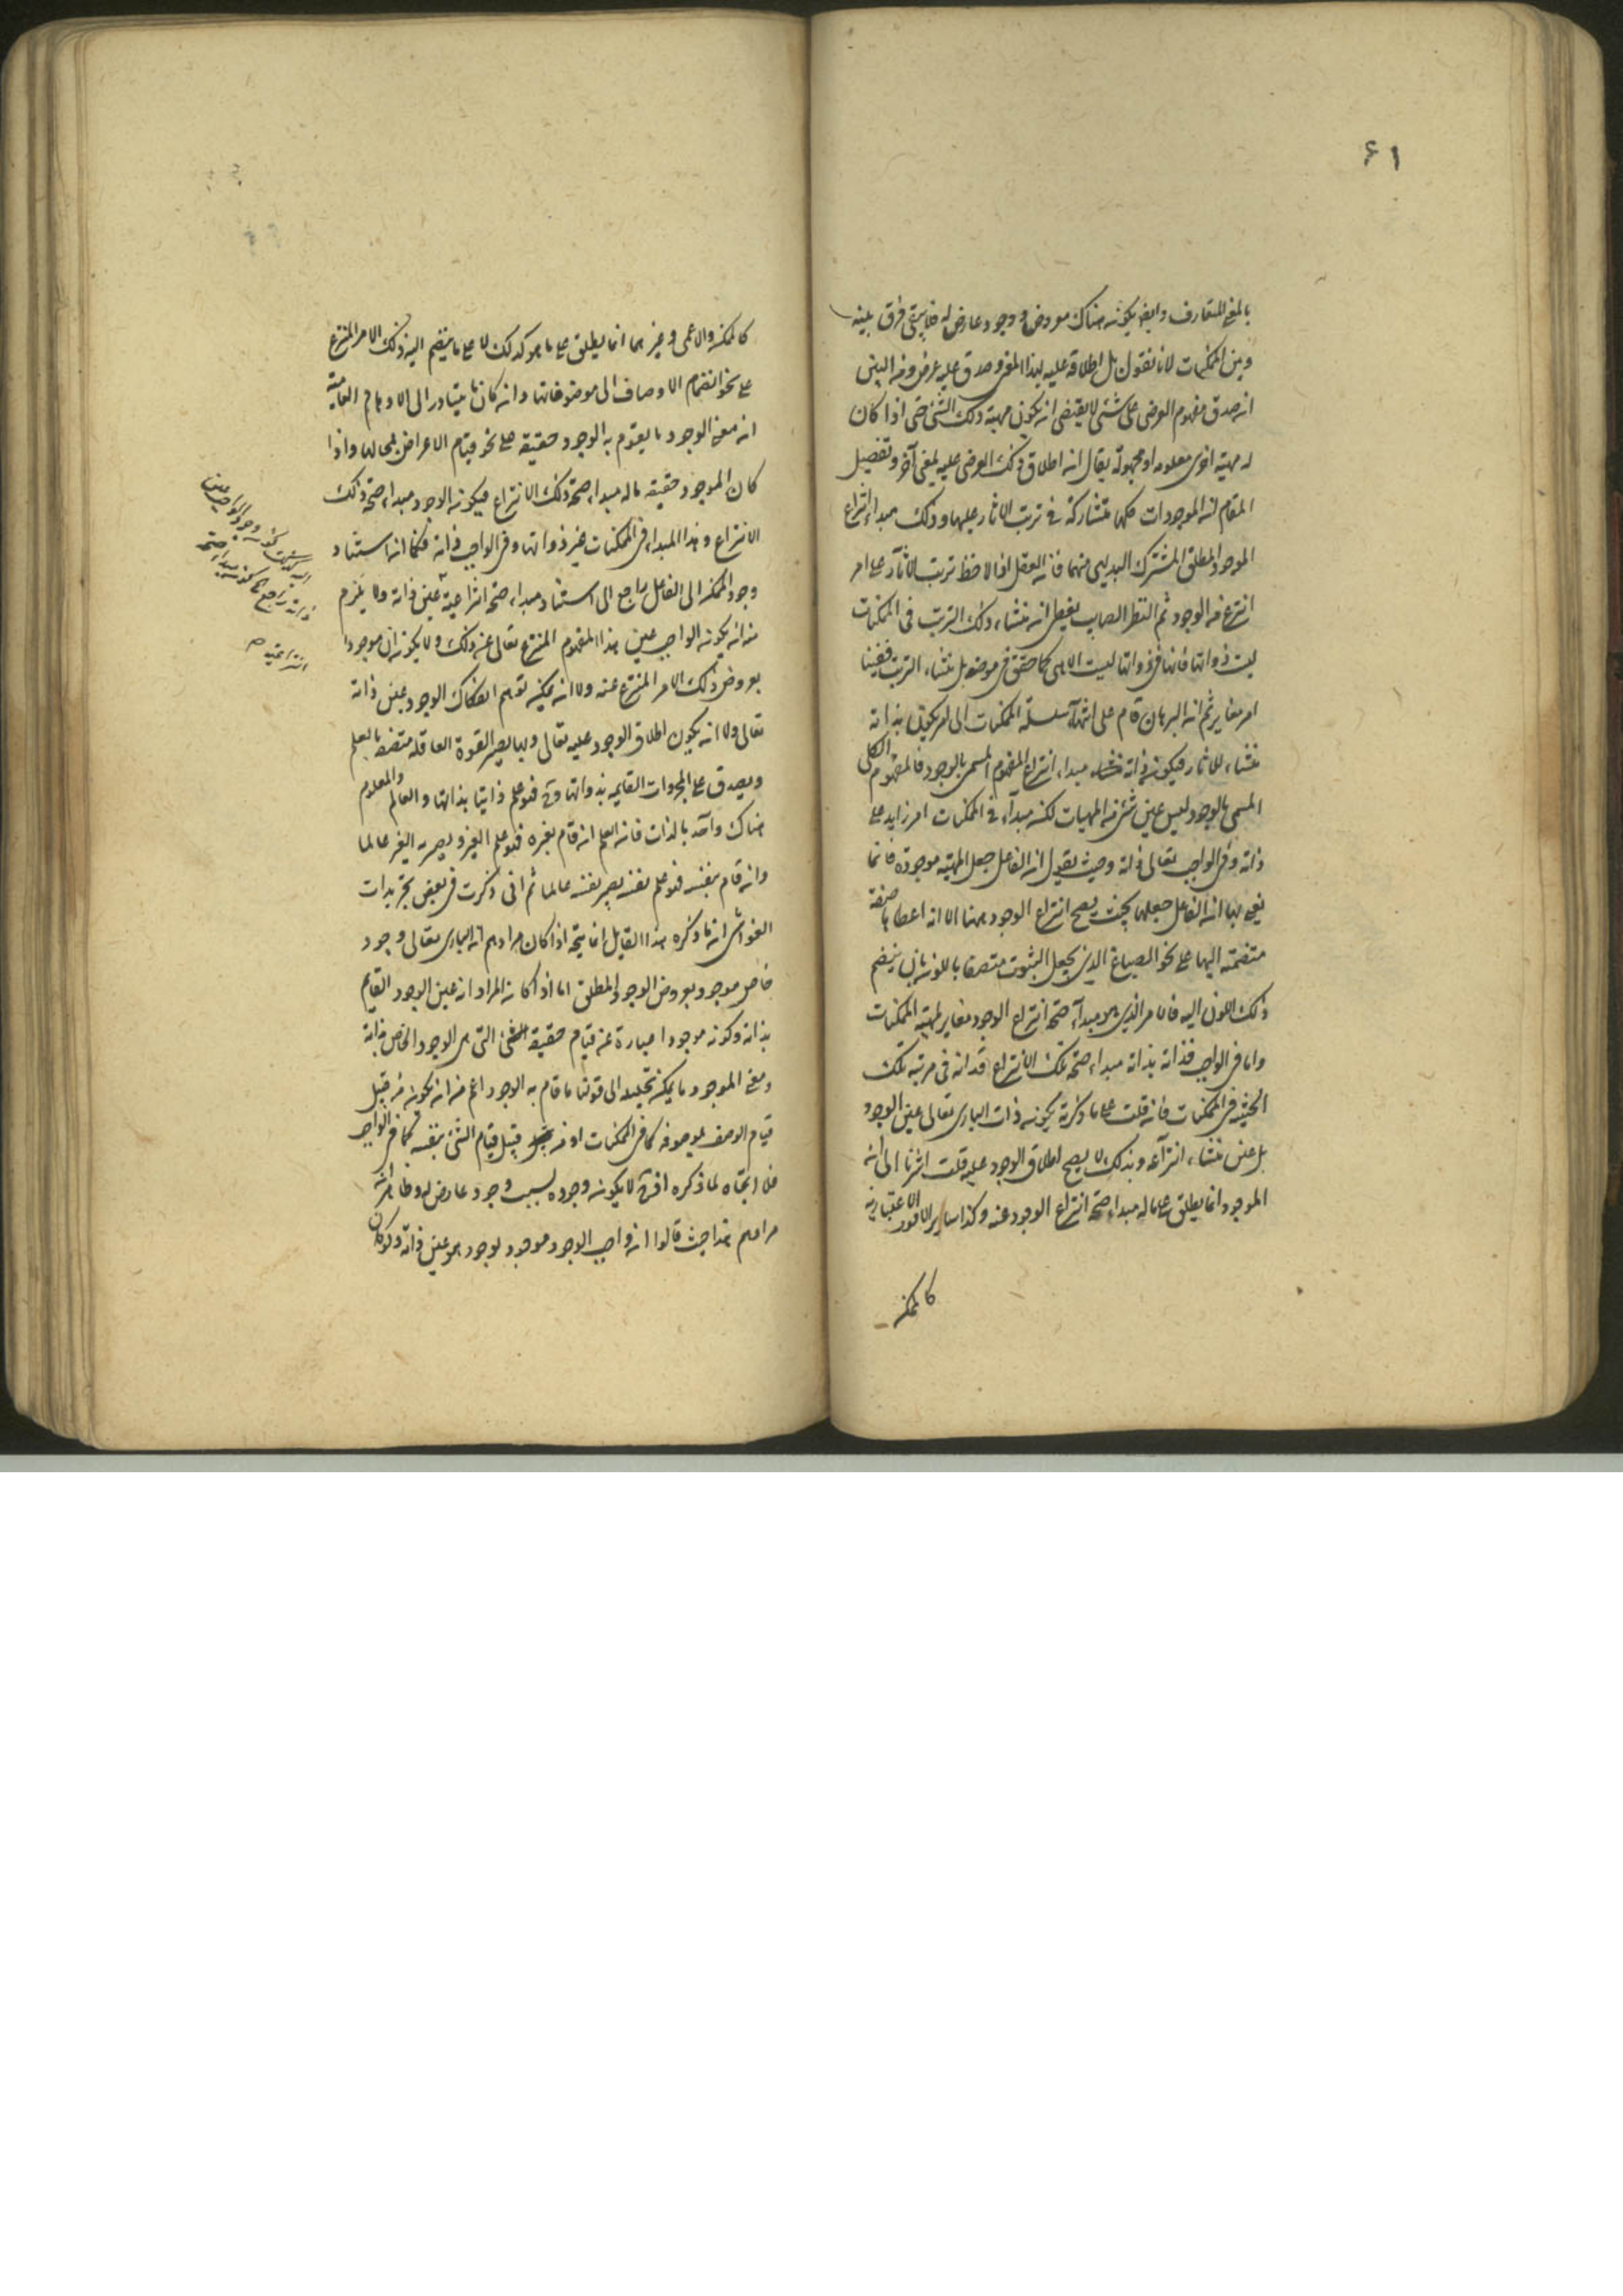 ٦١
بالمعنى المتعارف وايضا يكون هناك معروض ووجود عارض له فلا يبقى فرق بينه
وبين الممكنات لانا نقول بل اطلاقه عليه بهذا المعنى وصدق عليه عرضى ومن البين
ان صدق مفهوم العرضى على شئى لا يقتضى ان يكون مهية ذلك الشئ حتى اذا كان
له مهية اخرى معلومة او مجهولة يقال ان اطلاق ذلك العرضى عليه بمعنى آخر وتفصيل
المقام ان الموجودات كلها متشاركة في ترتب الاثار عليها وذلك مبداء انتزاع
الموجود المطلق المشترك البديهى منها فان العقل اذا لاحظ ترتب الاثار على امر
انتزع منه الوجود ثم النظر الصايب يفيد ان منشاء ذلك الترتب فى الممكنات
ليست ذواتها فانها فى ذواتها ليست الا هى كما حقق فى موضعه بل منشاء الترتب فيها
امر مغاير ثم ان البرهان قام على انتهاء سلسلة الممكنات الى امر يكون بذاته
منشاء للاثار فيكون فى ذاته مبداء انتزاع المفهوم المسمى بالوجود فالمفهوم الكلى
المسمى بالوجود ليس عين شئ من المهيات لكنه مبداء فى الممكنات امر زايد على
ذاته وفى الواجب تعالى ذاته وحيث يقول ان الفاعل جعل المهية موجودة فانما
يعنى بها ان الفاعل جعلها بحيث يصح انتزاع الوجود منها لا انه اعطاها صفة
منضمة اليها على نحو الصباغ الذى يجعل الثوب متصفا باللون بان ينضم
ذلك اللون اليه فالامر الذى هو مبداء صحة انتزاع الوجود مغاير لمهية الممكنات
واما فى الواجب فذاته بذاته مبداء صحة تلك الانتزاع فذاته فى مرتبة تلك
الحيثية فى الممكنات فان قلت على ما ذكرته يكون ذات البارى تعالى عين الوجود
بل عين منشاء انتزاعه وبذلك لا يصح اطلاق الوجود عليه قلت اشرنا الى ان
الموجود انما يطلق على ما له مبداء صحة انتزاع الوجود عنه وكذا ساير الامور الاعتبارية
كالممكن
كالممكن والاعمى وغيرهما انما يطلق على ما هو كذلك لا على ما ينضم اليه ذلك الامر المنتزع
على نحو انضمام الاوصاف الى موضوعاتها وان كان يتبادر الى الاوهام العامية
ان معنى الوجود ما يقوم به الوجود حقيقة على نحو قيام الاعراض بمحالها واذا
كان الموجود حقيقة ما له مبداء صحة ذلك الانتزاع فيكون الوجود مبداء صحة ذلك
الانتزاع وهذا المبداء فى الممكنات غير ذواتها وفى الواجب ذاته فكما ان استناد
وجود الممكن الى الفاعل راجع الى استناد مبداء صحة انتزاعية عين ذاته ولا يلزم
منه ان يكون الواجب عين هذا المفهوم المنتزع تعالى عن ذلك ولا يكون ان موجودا
بعروض ذلك الامر المنتزع عنه ولا انه يمكنه توهم انفكاك الوجود عين ذاته
تعالى ولا انه يكون اطلاق الوجود عليه تعالى وبها يصير القوة العاقلة متصفة بالعلم
ويصدق على المجردات القايمة بذواتها وح فهو علم ذاتها بذاتها والعالم والمعلوم
هناك واحد بالذات فان العلم ان قام بغيره فهو علم الغير ويصير به الغير عالما
وان قام بنفسه فهو علم نفسه يصير نفسه عالما ثم انى ذكرت فى بعض تجريدات
الغواشى ان ما ذكره هذا القايل انما يتجه اذا كان مرادهم ان البارى تعالى وجود
خاص موجود بعروض الوجود المطلق اما اذا كان المراد انه عين الوجود القايم
بذاته وكونه موجودا عبارة عن قيام حقيقة الشئ التى هى الوجود الخاص بذاته
ومعنى الموجود ما يمكن تحليله الى قولنا ما قام به الوجود اعم من ان يكون من قبيل
قيام الوصف بموصوفه كما فى الممكنات او من قبيل قيام الشئ بنفسه كما فى الواجب
فلا اتجاه لما ذكره اذ ح لا يكون وجوده بسبب وجود عارض له وظاهر ان
مرادهم هذا حيث قالوا ان واجب الوجود موجود بوجود هو عين ذاته ولو كان
كون وجود الواجب عين
ذاته راجع الى كونه مبداء صحة
انتزاعية